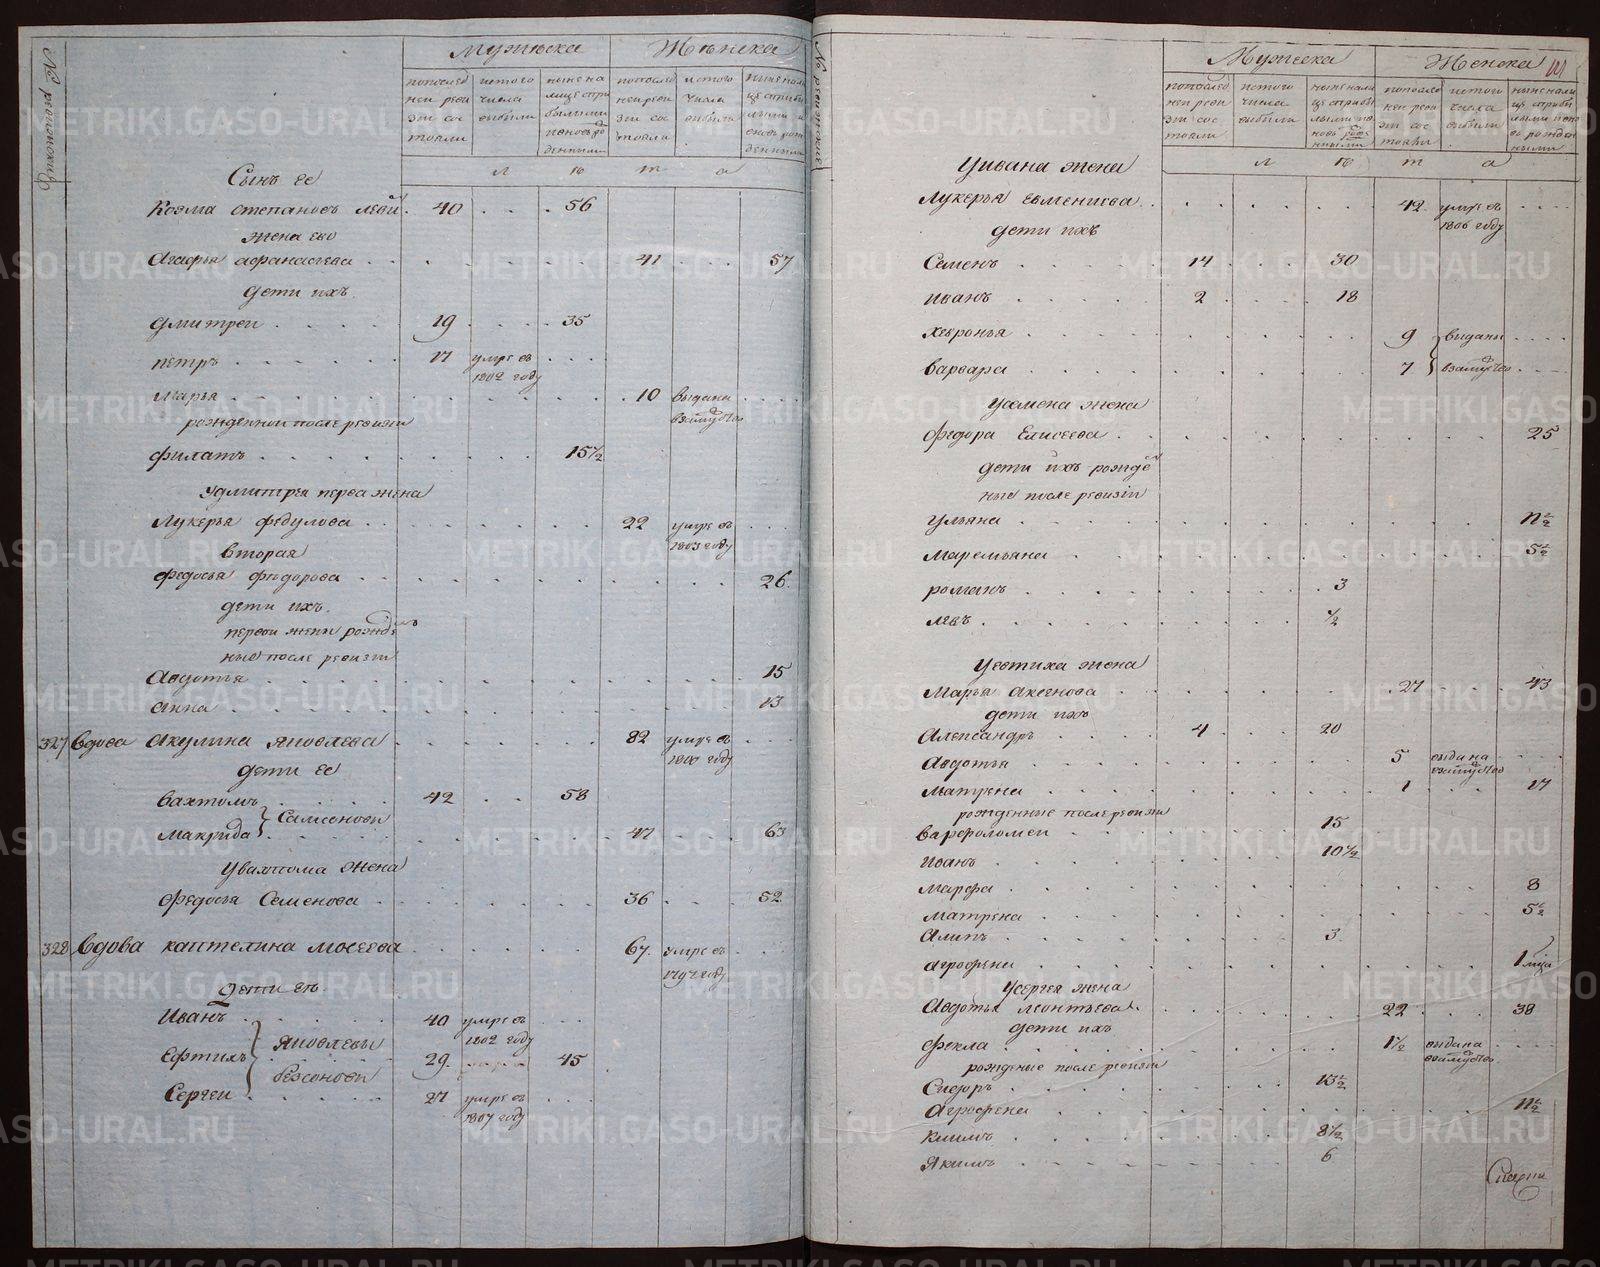 № ревизскиѣ
Мужеска
Женска
попослед ней реви зіи сос тояли
истого числа выбыло
ныне на лице спри былыми и вновь ро жденными
попослед ней реви зіи сос тояла
истого числа выбыла
ныне нали це сприбы лыми и вновь рож денными
л ѣ т а
Сынъ ее
Козма степановъ левй 40 56
жена ево
Агафья афанасьева 41 57
дети ихъ
дмитреи 19 35
петръ 17 умре въ 1802 году
Марья 10 выдана взамужство
рожденной после ревизіи
филатъ 15½
У дмитрея перва жена
Лукерья федулова 22 умре въ 1803 году
Вторая
федосья фѣдорова 26
дети ихъ
первои жены рожден
ные после ревизіи
Авдотья 15
анна 13
327 Вдова Акулина яковлева 82 умре въ 1800 году
дети ее
Вахтомъ 42 58
Самсоновы
Макрида 47 63
У вахтома жена
федосья Семенова 36 52
328 Вдова каптелина мосеева 67 умре въ году
дети еѣ
Иванъ 40 умре въ 1802 году
Яковлевы
Ефтихъ 29 45
безсоновы
Сергеи 27 умре въ 1807 году
№ ревизские
Мужеска
Женска
попослед ней реви зіи сос тояли
истого числа выбыло
ныне нали це сприбы лыми и вновь рож денными
попоследней реви зіи сос тояли
истого числа выбыли
ныне нали це спри былыми и вновь рожден ными
л ѣ т а
У ивана жена
Лукерья евмениева 42 умре въ 1806 году
дети ихъ
Семенъ 14 30
иванъ 2 18
хевронья 9 выданы
варвара 7 взамужство
У семена жена
федора Елисеева 25
дети ихъ рожден
ные после ревизіи
Ульяна 11½
Маремьяна 5½
романъ 3
левъ ½
У евтиха жена
Марья аксенова 27 43
дети ихъ
Александръ 4 20
авдотья 5 выдана взамужство
матрена 1 17
рожденные после ревизіи
варфоломеи 15
иванъ 10½
марфа 8
матрена 5½
Алипъ 3
агрофена 1 мца
У сергея жена
Авдотья леонтьева 22 38
дети ихъ
фекла 1½ выдана взамужство
рожденые после ревизіи
Сидоръ 13½
агрофена 11½
климъ 8½
якимъ 6